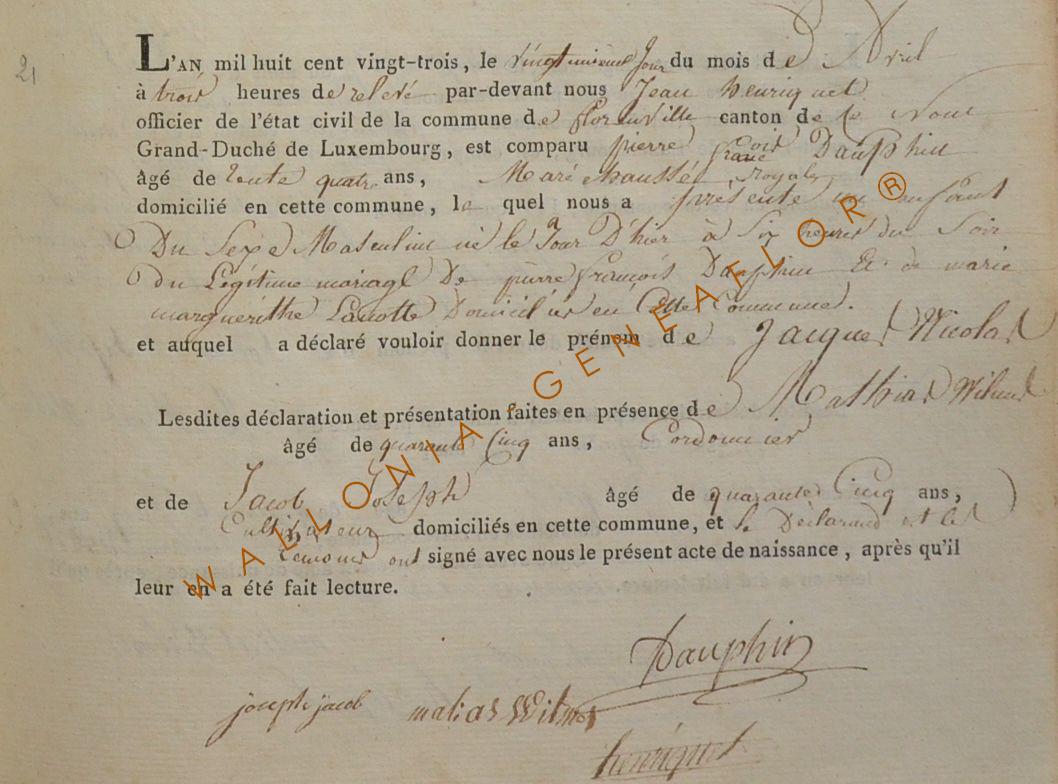 21
L'AN mil huit cent vingt-trois, le vingtunieme jour du mois de Avril
à trois heures de relevé par-devant nous Jean henriquet
officier de l'état civil de la commune de florenville canton de
Grand-Duché de Luxembourg, est comparu pierre francois Dauphin
âgé de trente quatre ans, Maréchaussée royale
domicilié en cette commune, le quel nous a présenté un enfant
Du Sexe Masculin né le Jour D'hier à Six heures du Soir
du Légitime mariage De pierre francois Dauphin Et de marie
marguérithe Lamotte Domiciliés en Cette Commune.
et auquel a déclaré vouloir donner le prénom de Jacques Nicolas
Lesdites déclaration et présentation faites en présence de Mathias Wilmes
âgé de quarante Cinq ans, Cordonnier
et de Jacob Joseph âgé de quarante Cinq ans,
Cultivateur domiciliés en cette commune, et le Déclarand et les
temoins ont signé avec nous le présent acte de naissance, après qu'il
leur en a été fait lecture.
Dauphin
joseph jacob matias Wilmes
henriquet
WALLONIA GENEAFLOR®